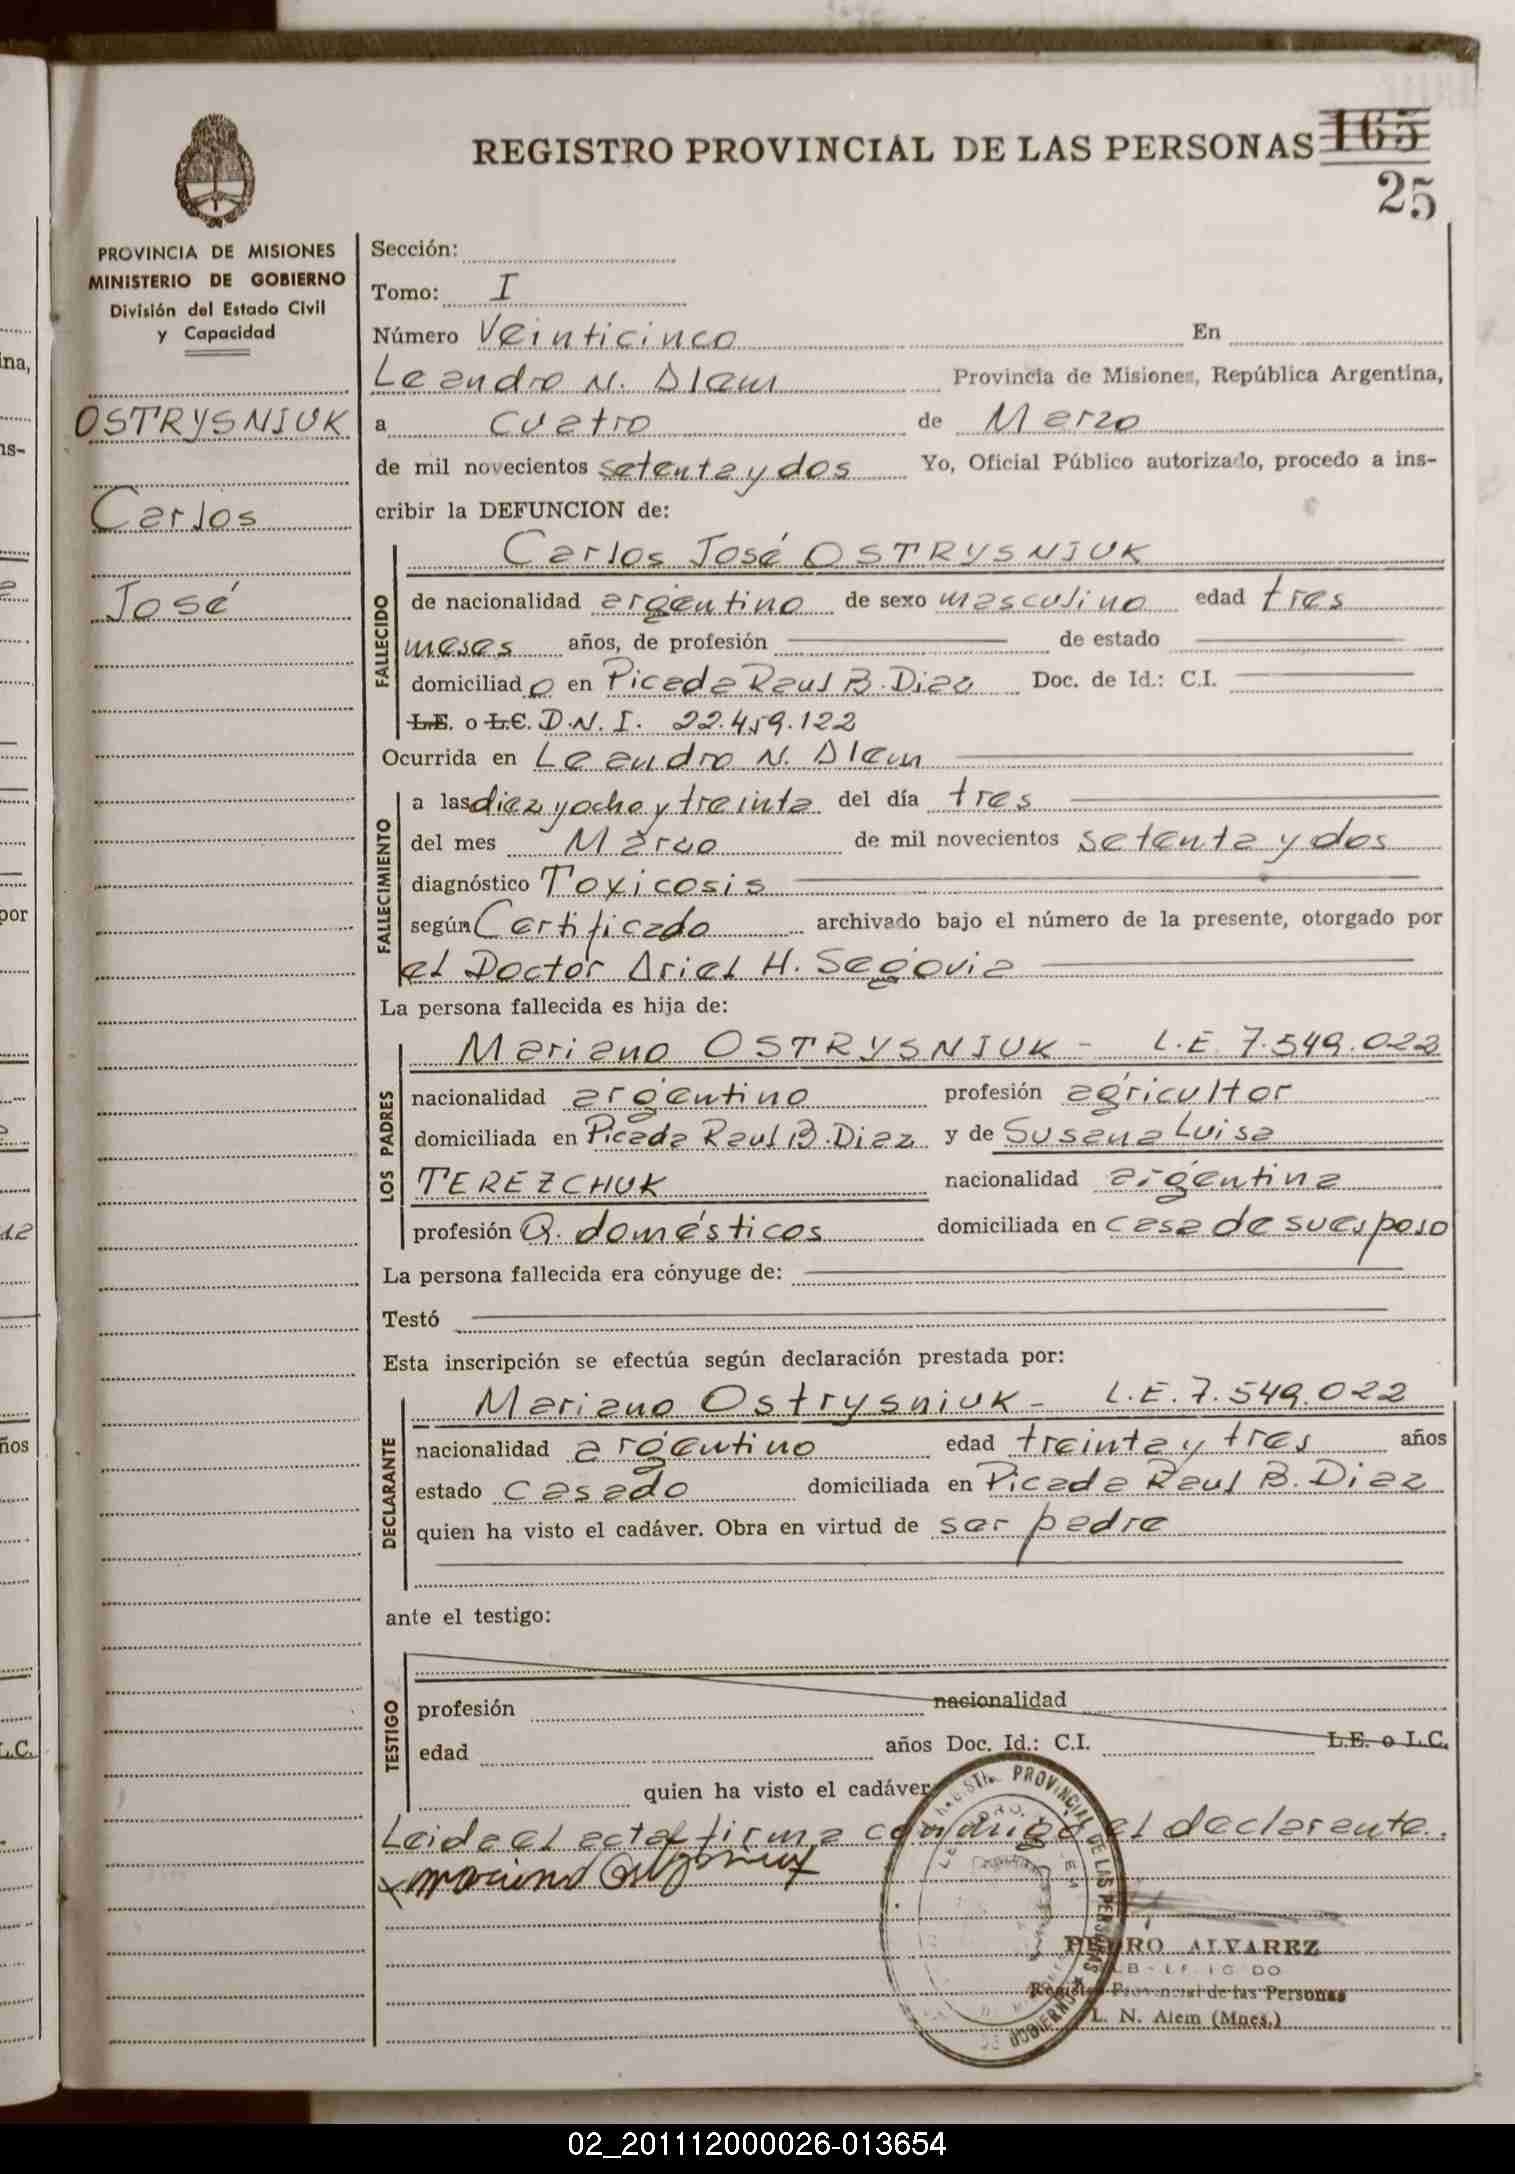 REGISTRO PROVINCIAL DE LAS PERSONAS 165
25
PROVINCIA DE MISIONES
MINISTERIO DE GOBIERNO
División del Estado Civil
y Capacidad
OSTRYSNIUK
Carlos
José
Sección:
Tomo: I
Número Veinticinco En
Leandro N. Alem Provincia de Misiones, República Argentina,
a cuatro de Marzo
de mil novecientos setenta y dos Yo, Oficial Público autorizado, procedo a ins-
cribir la DEFUNCION de:
FALLECIDO
Carlos José OSTRYSNIUK
de nacionalidad argentino de sexo masculino edad tres
meses años, de profesión de estado
domiciliado en Picada Raul B. Diaz Doc. de Id.: C.I.
L.E. o L.C. D.N.I. 22.459.122
Ocurrida en Leandro N. Alem
FALLECIMIENTO
a las diez y ocho y treinta del día tres
del mes Marzo de mil novecientos setenta y dos
diagnóstico Toxicosis
según Certificado archivado bajo el número de la presente, otorgado por
el Doctor Ariel H. Segovia
La persona fallecida es hija de:
LOS PADRES
Mariano OSTRYSNIUK - L.E. 7.549.022
nacionalidad argentino profesión agricultor
domiciliada en Picada Raul B. Diaz y de Susana Luisa
TEREZCHUK nacionalidad argentina
profesión Q. domésticos domiciliada en casa de su esposo
La persona fallecida era cónyuge de:
Testó
Esta inscripción se efectúa según declaración prestada por:
DECLARANTE
Mariano Ostrysniuk - L.E. 7.549.022
nacionalidad argentino edad treinta y tres años
estado casado domiciliada en Picada Raul B. Diaz
quien ha visto el cadáver. Obra en virtud de ser padre
ante el testigo:
TESTIGO
profesión nacionalidad
edad años Doc. Id.: C.I. L.E. o L.C.
quien ha visto el cadáver
Leida el acta firma conmigo el declarante.
PROVINCIAL DE LAS PERSONAS
PEDRO ALVAREZ
Registro Provincial de las Personas
L. N. Alem (Mnes.)
02_201112000026-013654